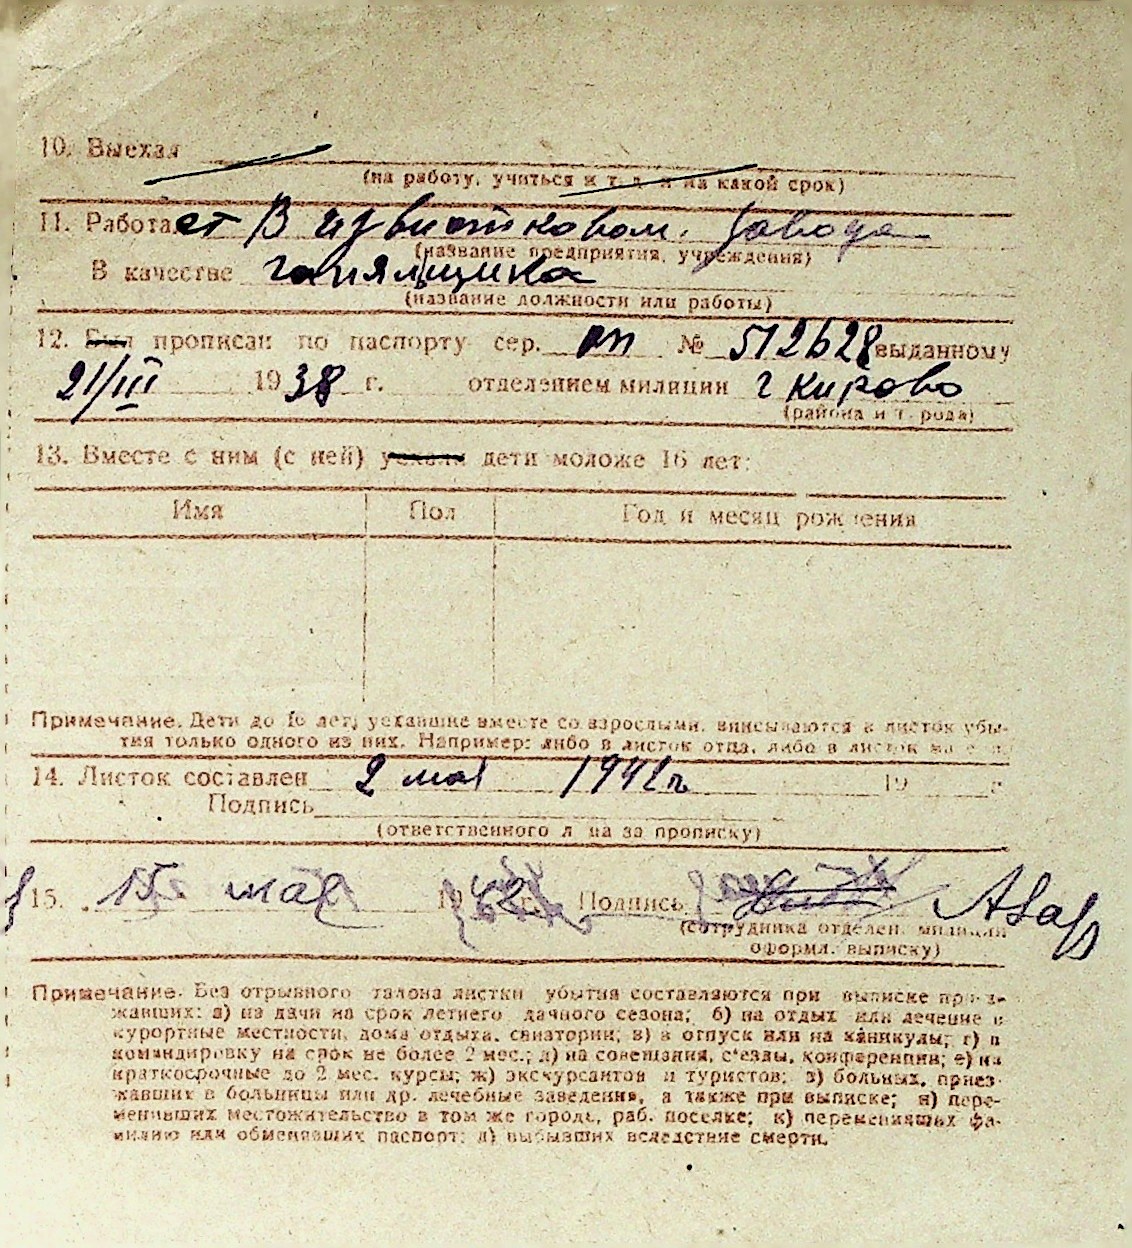 10. Выехал
(на работу, учиться и т. д. и на какой срок)
11. Работает В известковом. завода
(название предприятия, учреждения)
В качестве
(название должности или работы)
12. Был прописан по паспорту сер. № 512628 выданному
21/III 1938 г. отделением милиции г Кирово
(района и города)
13. Вместе с ним (с ней) уехали дети моложе 16 лет:
Имя Пол Год и месяц рождения
Примечание. Дети до 16 лет, уехавшие вместе со взрослыми, вписываются в листок убы-
тия только одного из них. Например: либо в листок отца, либо в листок матери
14. Листок составлен 2 мая 1942 г. 19 г.
Подпись
(ответственного лица за прописку)
15. 15 мая 1942 г. Подпись
(сотрудника отделен. милиции
оформл. выписку)
Примечание. Без отрывного талона листки убытия составляются при выписке приез-
жавших: а) на дачи на срок летнего дачного сезона; б) на отдых или лечение в
курортные местности, дома отдыха, санатории; в) в отпуск или на каникулы; г) в
командировку на срок не более 2 мес.; д) на совещания, с'езды, конференции; е) на
краткосрочные до 2 мес. курсы; ж) экскурсантов и туристов; з) больных, приез-
жавших в больницы или др. лечебные заведения, а также при выписке; и) пере-
менивших местожительство в том же городе, раб. поселке; к) переменивших фа-
милию или обменявших паспорт; л) выбывших вследствие смерти.